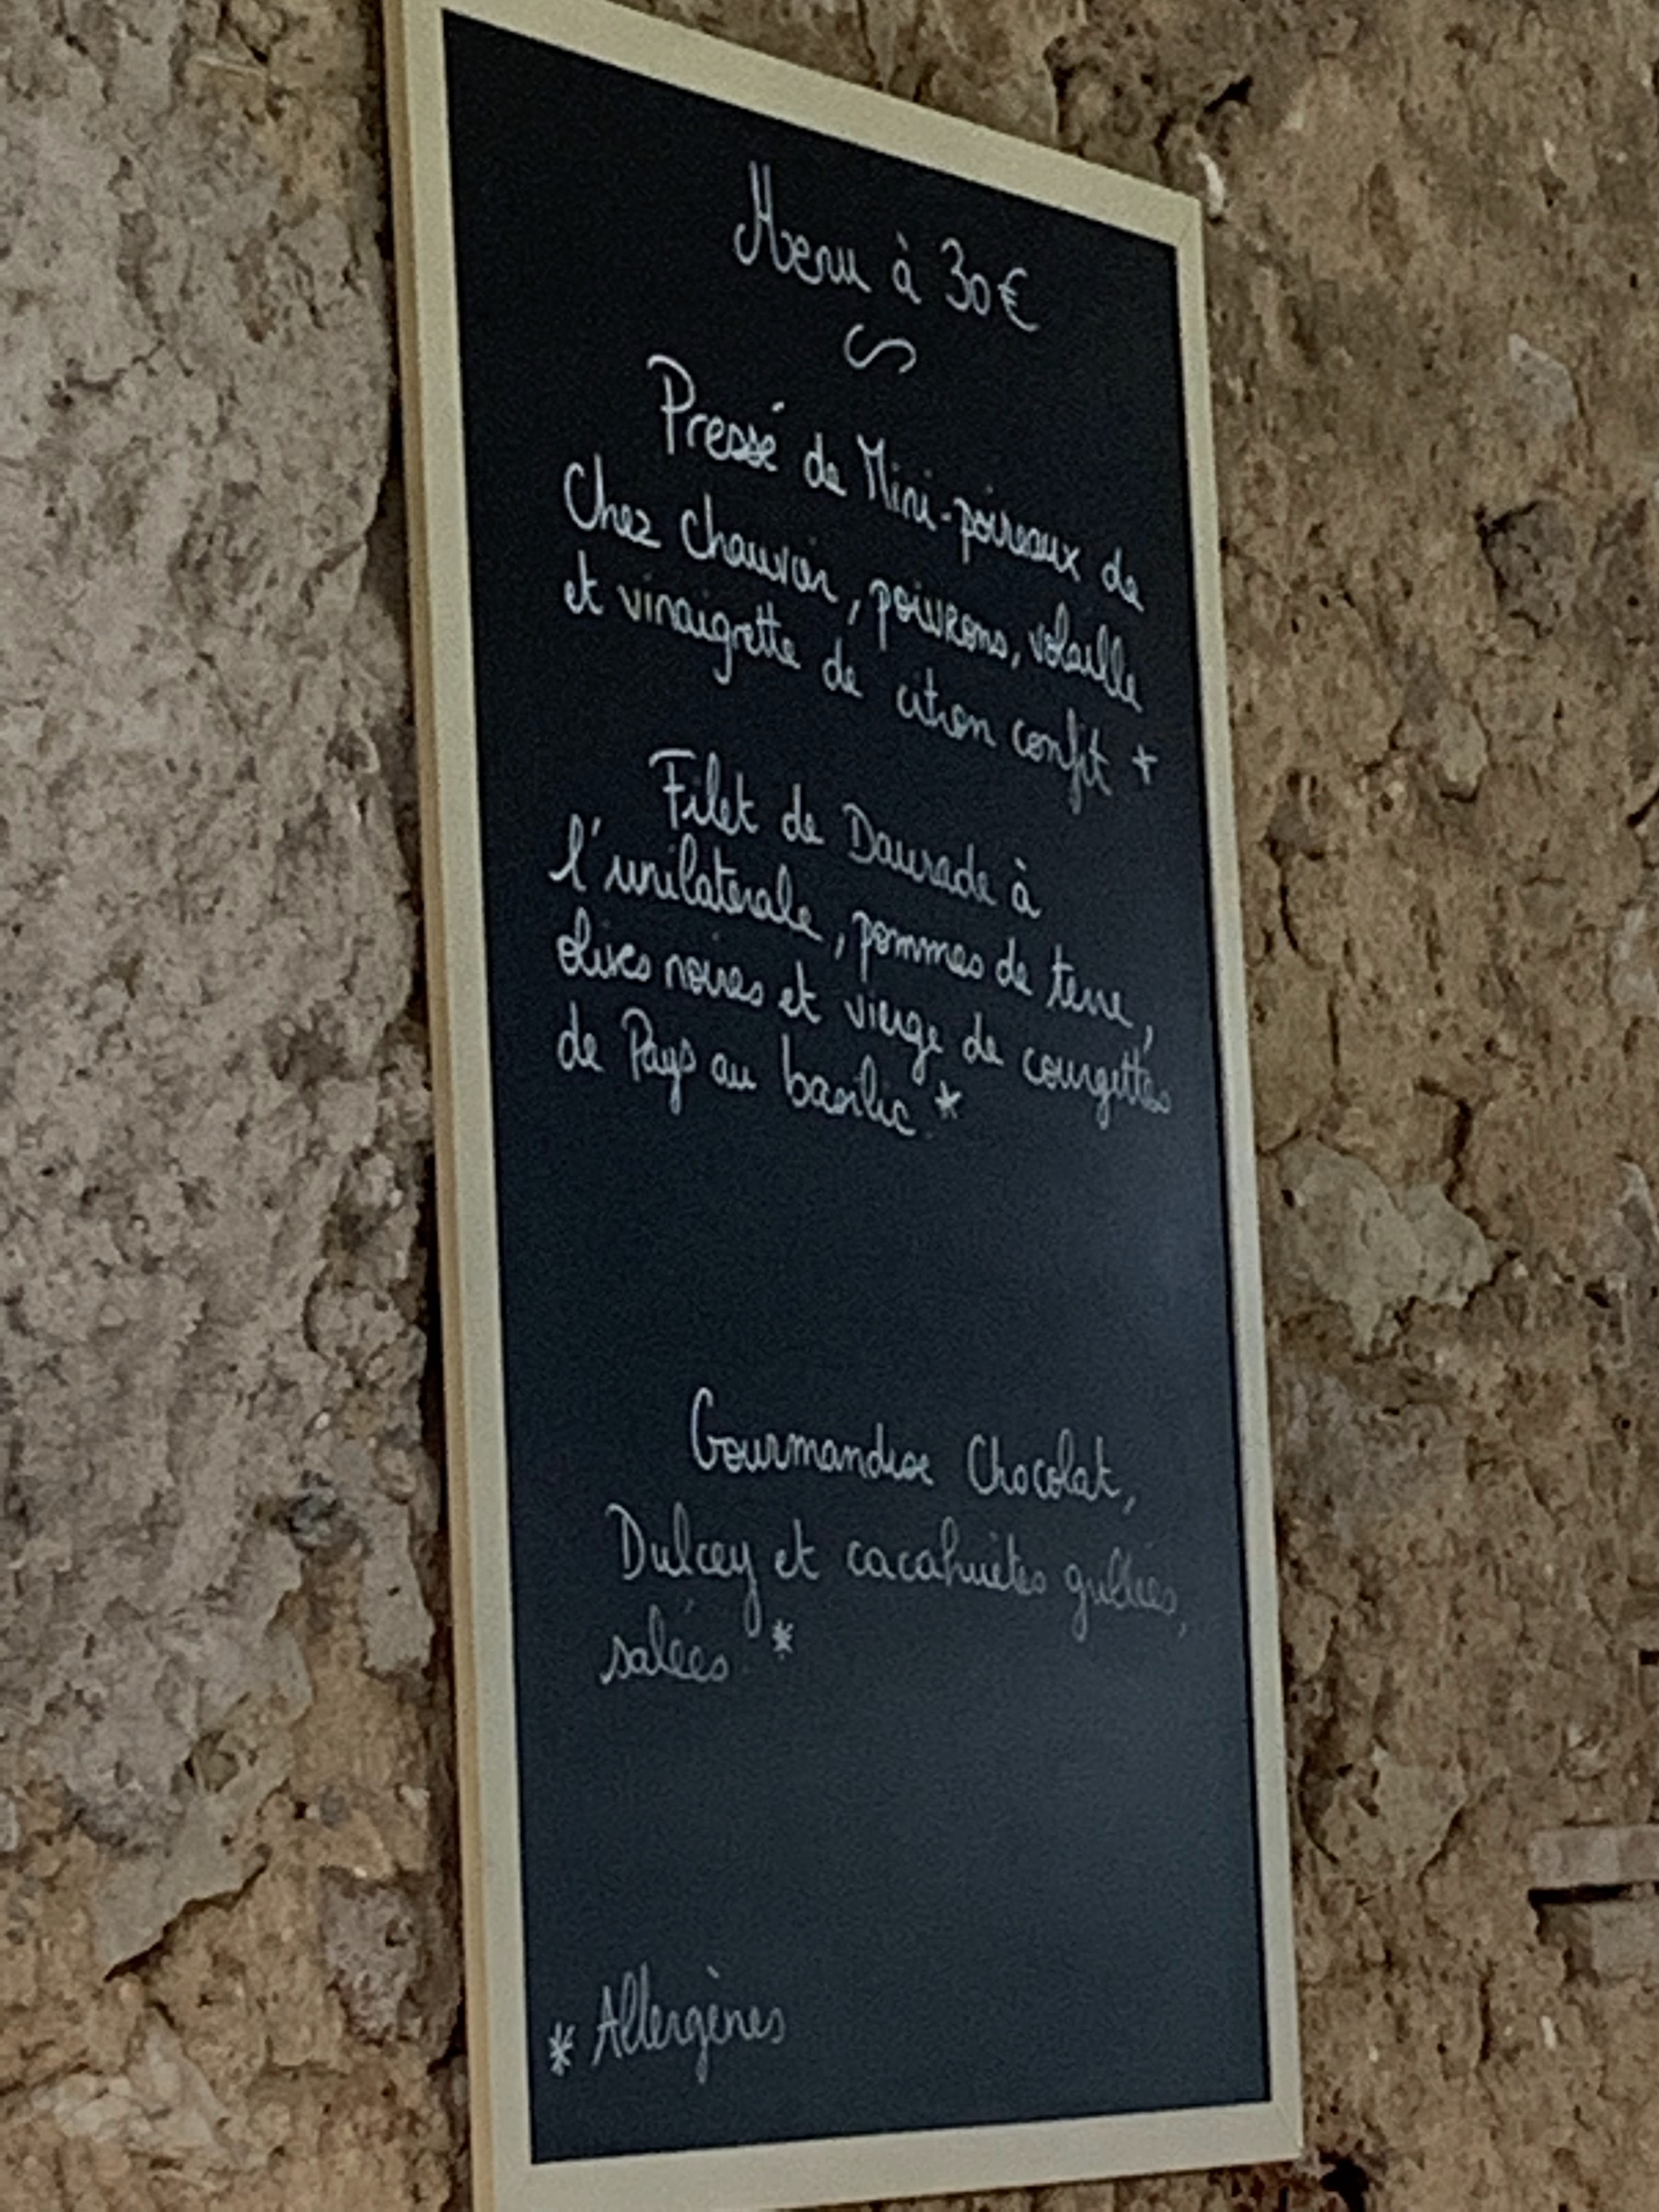 Menu à 30€
Pressé de Mini-poireaux de
Chez Chauvin, poivrons, volaille
et vinaigrette de citron confit *
Filet de Daurade à
l'unilaterale, pommes de terre,
olives noires et vierge de courgettes
de Pays au basilic. *
Gourmandise Chocolat,
Dulcey et cacahuètes grillées,
salées. *
* Allergènes